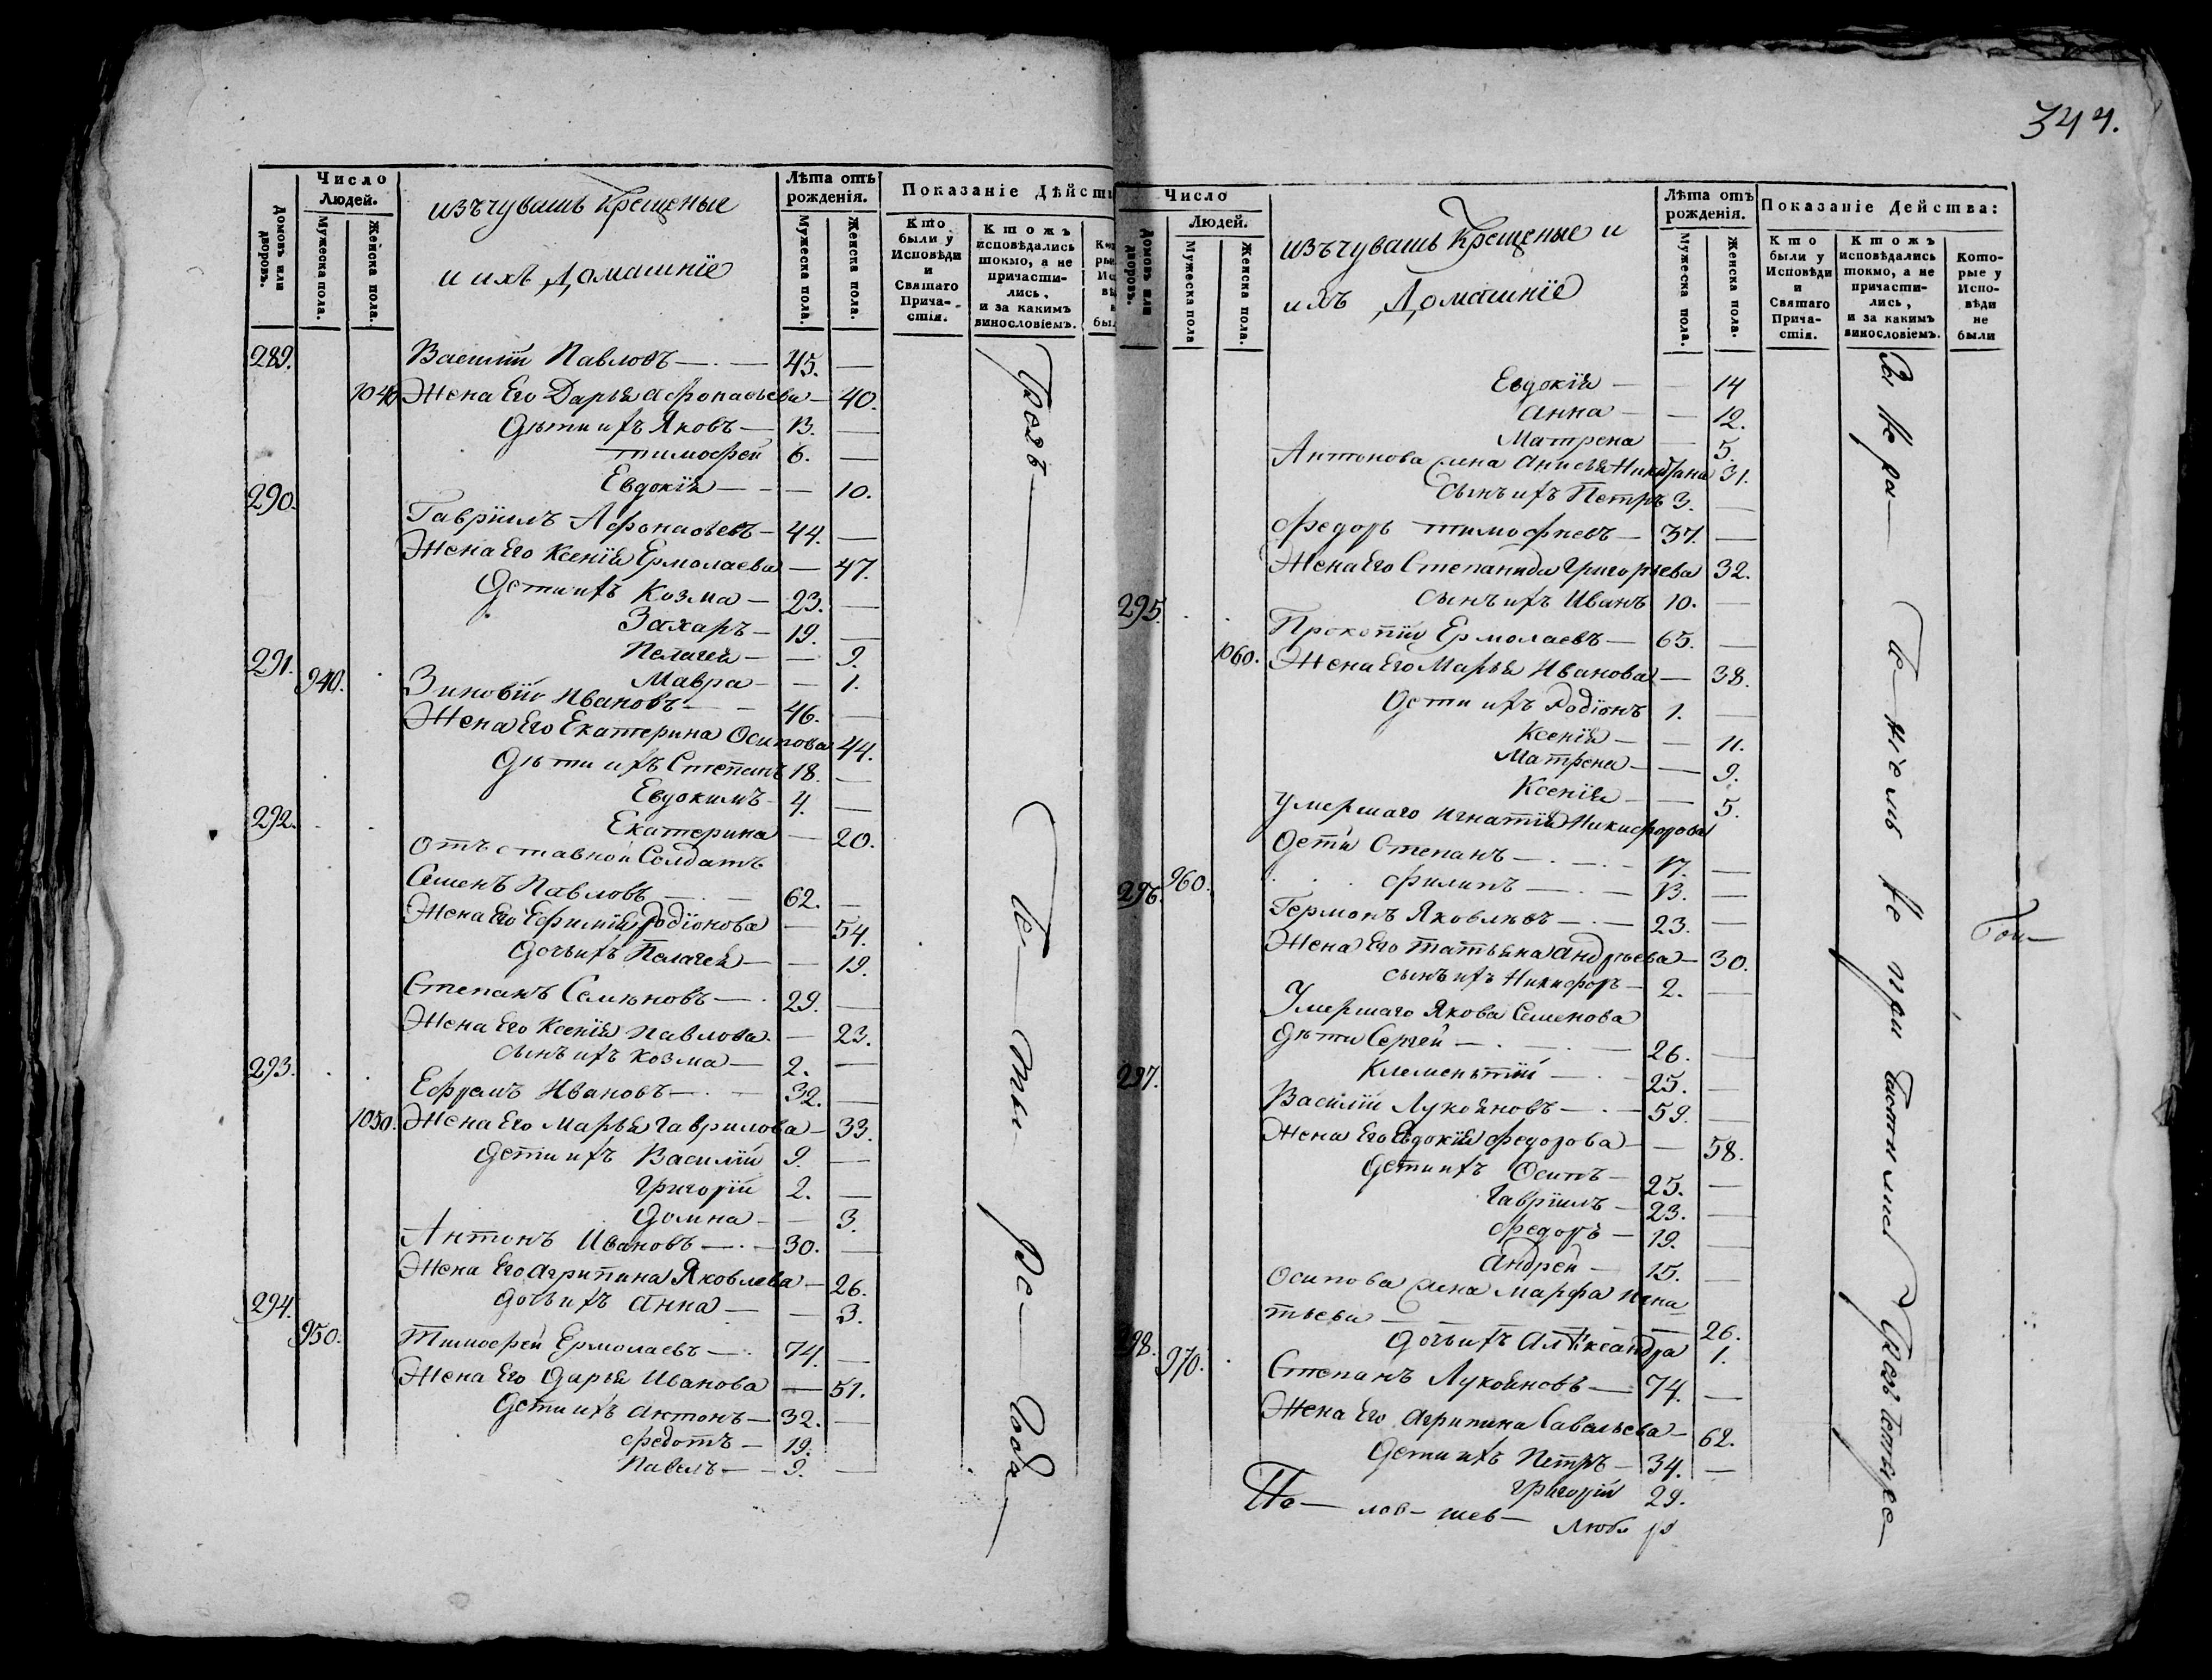 Число
Людей.
Домовъ или дворовъ.
Мужеска пола.
Женска пола.
изъ чувашъ Крещеные
и ихъ Домашніе
Лѣта отъ
рожденія.
Мужеска пола.
Женска пола.
Показаніе Дѣйст
Кто были у Исповѣди и Святаго Прича-стія.
Ктожъ исповѣдались токмо, а не причасти-лись, и за какимъ винословіемъ.
289. Василій Павловъ — 45. —
1040 Жена Его Дарья Афонасьева — 40.
Дѣти ихъ Яковъ — 13. —
тимофей 6. —
Евдокія — — 10.
290. Гавріилъ Афонасьевъ — 44. —
Жена Его Ксенія Ермолаева — 47.
Дети ихъ Козма — 23. —
Захаръ — 19. —
Пелагея — — 9.
Мавра — — 1.
291. 940. Зиновій Ивановъ — 46. —
Жена Его Екатерина Осипова 44.
Дѣти ихъ Степанъ 18. —
Евдокимъ 4. —
Екатерина — 20.
292. Отъставной Солдатъ
Семенъ Павловъ — 62. —
Жена Его Ефимія Родіонова — 54.
Дочь ихъ Пелагея — — 19.
Степанъ Семѣновъ — 29. —
Жена Его Ксенія Павлова — 23.
сынъ ихъ Козма — 2. —
293. Ефремъ Ивановъ — 32. —
1050. Жена Его Марья Гаврилова — 33.
Дети ихъ Василій 9. —
Григорій 2. —
Домна — — 3.
Антонъ Ивановъ — 30. —
Жена Его Агрипина Яковлева — 26.
Дочь ихъ Анна — — 3.
294. 950. Тимофей Ермолаевъ — 74. —
Жена Его Дарья Иванова — 51.
Дети ихъ Антонъ — 32. —
Федотъ — 19.
Павелъ — 9. —
344.
Число
Людей.
Домовъ или дворовъ.
Мужеска пола
Женска пола.
изъ чувашъ Крещеные и
ихъ Домашніе
Лѣта отъ
рожденія.
Мужеска пола.
Женска пола.
Показаніе Действа:
Кто были у Исповѣди и Святаго Прича-стія.
Ктожъ исповѣдались токмо, а не причасти-лись, и за какимъ винословіемъ.
Кото-рые у Испо-вѣди не были
Евдокія — — 14
Анна — — 12.
Матрена — 5.
Антонова жена Анисья Никитина 31.
Сынъ ихъ Петръ 3. —
Федоръ тимофиевъ — 37. —
Жена Его Степанида Григорьева 32.
сынъ ихъ Иванъ 10. —
295. Прокопій Ермолаевъ — 65. —
1060. Жена Его Марья Иванова — 38.
Дети ихъ Родіонъ 1. —
Ксенія — — 11.
Матрена — — 9.
Ксенія — — 5.
умершаго Игнатія Никифорова
Дети Степанъ — 17. —
960. Филипъ — 13. —
296. Германъ Яковлевъ — 23. —
Жена Его Татьяна Андреева — 30.
сынъ ихъ Никифоръ — 2. —
Умершаго Якова Семенова
Дѣти Сергей — 26. —
Клементій — 25. —
297. Василій Лукояновъ — 59. —
Жена Его Евдокія Федорова — — 58.
Дети ихъ Осипъ — 25. —
Гавріилъ — 23. —
Федоръ — 19. —
Андрей — 15. —
Осипова жена Марфа Игна
тьева — — 26.
Дочь ихъ Александра 1.
298. 970. Степанъ Лукояновъ — 74. —
Жена Его Агрипина Савельева — 62.
Дети ихъ Петръ — 34. —
Григорій 29.